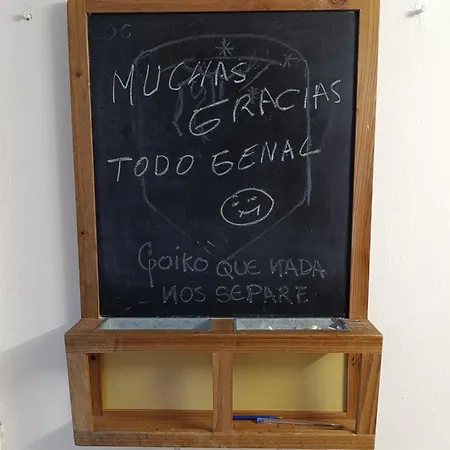 MUCHAS
GRACIAS
TODO GENAL
Goiko QUE NADA
NOS SEPARE